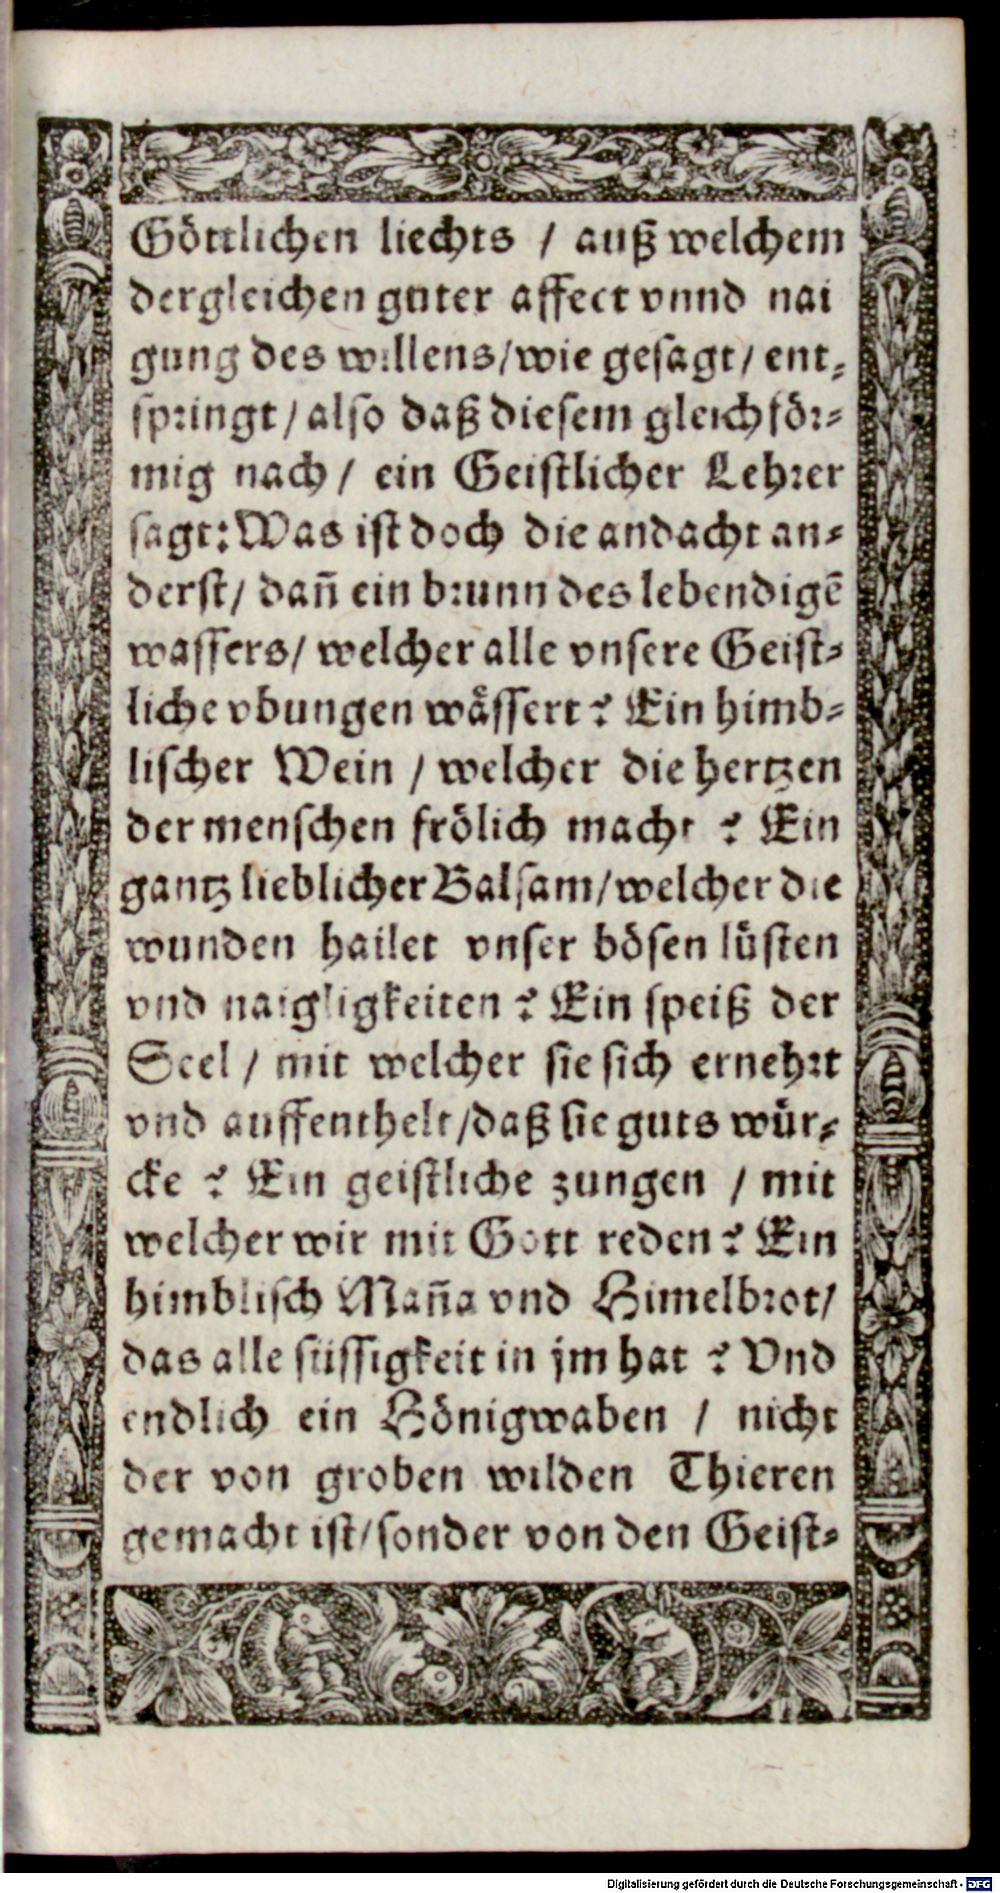 Göttlichen liechts / auß welchem
dergleichen guter affect vnnd nai
gung des willens/wie gesagt/ ent-
springt/ also daß diesem gleichför-
mig nach/ ein Geistlicher Lehrer
sagt: Was ist doch die andacht an-
derst/ dañ ein brunn des lebendigẽ
wassers/ welcher alle vnsere Geist-
liche vbungen wässert? Ein himb-
lischer Wein / welcher die hertzen
der menschen frölich macht ? Ein
gantz lieblicher Balsam/welcher die
wunden hailet vnser bösen lüsten
vnd naigligkeiten ? Ein speiß der
Seel / mit welcher sie sich ernehrt
vnd auffenthelt/daß sie guts wür-
cke ? Ein geistliche zungen / mit
welcher wir mit Gott reden? Ein
himblisch Mañа vnd Himelbrot/
das alle süssigkeit in jm hat ? Vnd
endlich ein Hönigwaben / nicht
der von groben wilden Thieren
gemacht ist/sonder von den Geist-
Digitalisierung gefördert durch die Deutsche Forschungsgemeinschaft - DFG